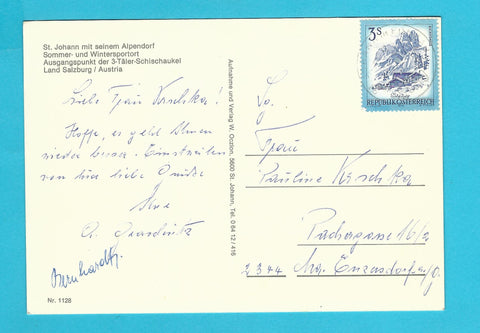 St. Johann mit seinem Alpendorf
Sommer- und Wintersportort
Ausgangspunkt der 3-Täler-Schischaukel
Land Salzburg / Austria
Liebe Frau Kirschka!
Hoffe, es geht Ihnen
wieder besser. Einstweilen
von hier liebe Grüße
Ihre
Bernhardt
Nr. 1128
Aufnahme und Verlag W. Oczlon, 5600 St. Johann, Tel. 0 64 12 / 416
3 S
REPUBLIK ÖSTERREICH
Frau
Pauline Kirschka
16/2
2344 Enzersdorf